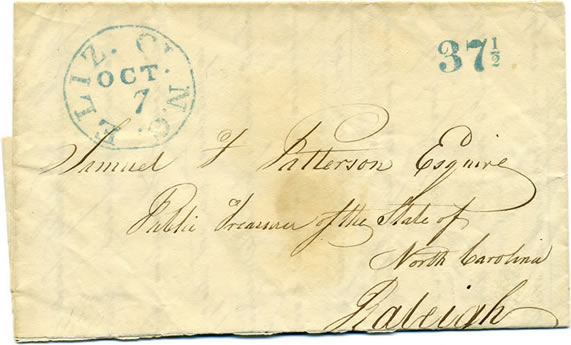 ELIZ. CY. N.C.
OCT.
7
37½
Samuel F Patterson Esquire
Public Treasurer of the State of
North Carolina
Raleigh